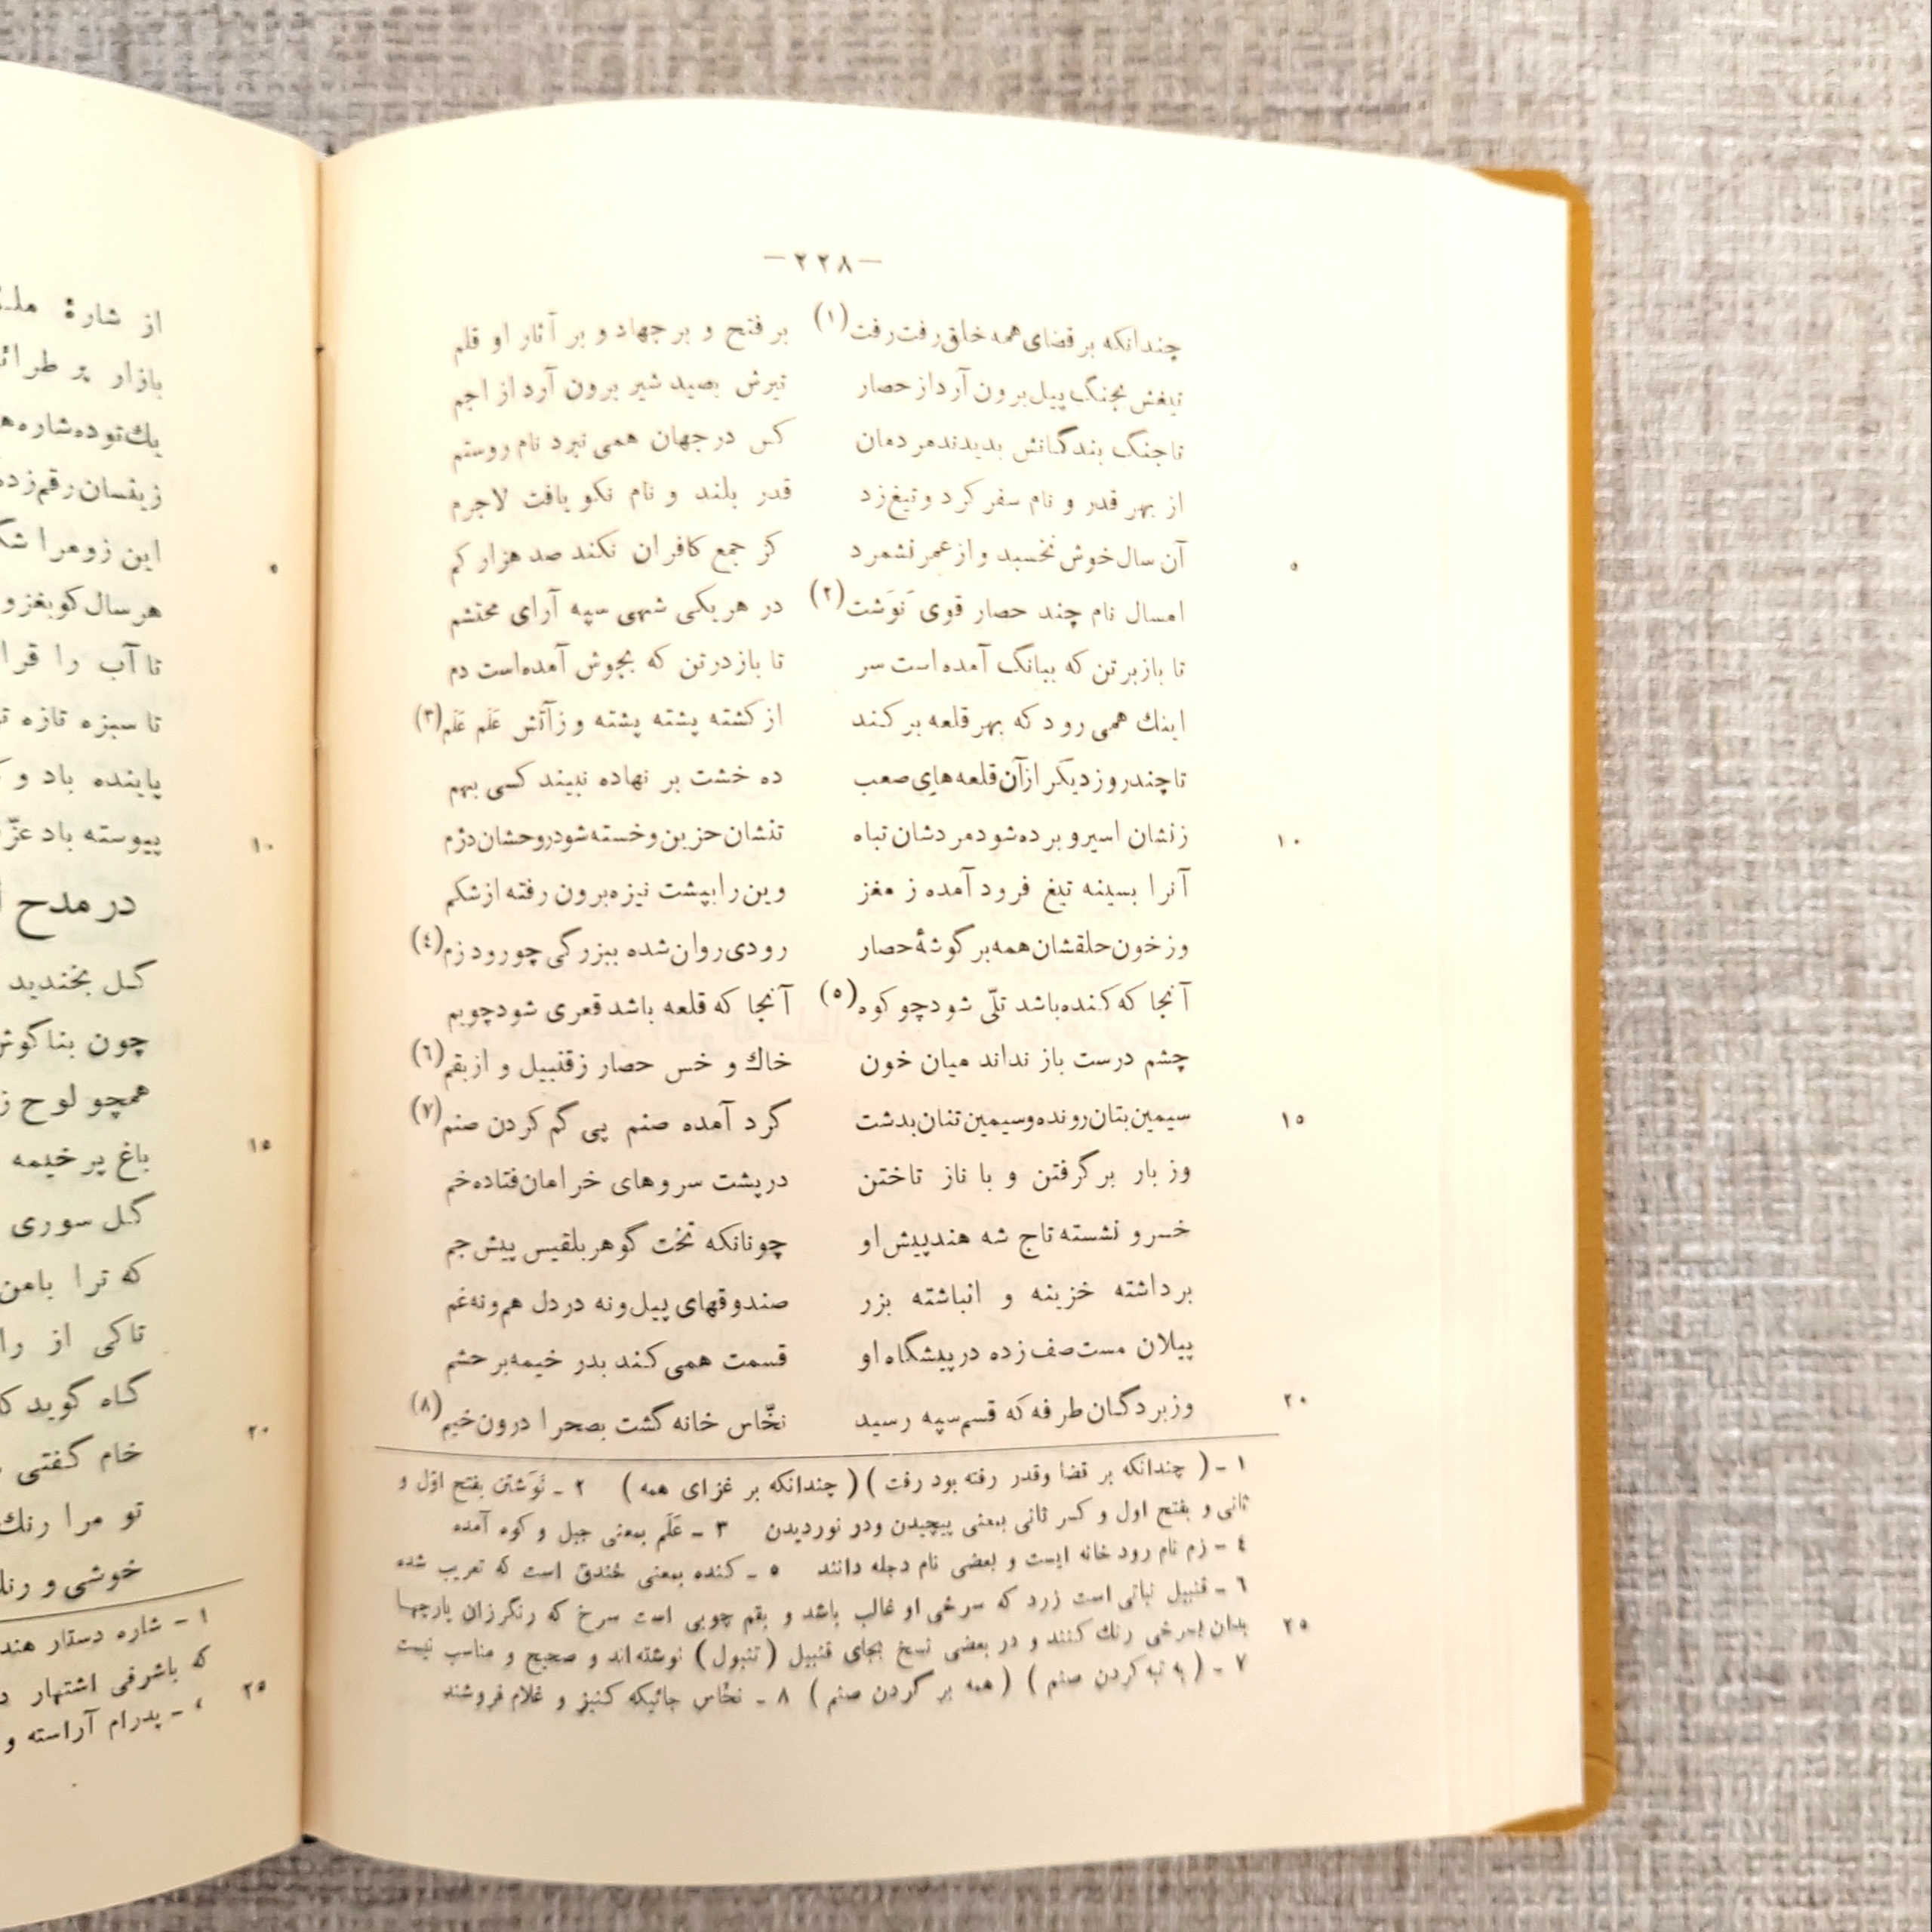 -۲۲۸-
چندانکه بر قضای همه خلق رفت رفت(۱) بر فتح و بر جهاد و بر آثار او قلم
تیغش بجنگ پیل برون آرد از حصار تیرش بصید شیر برون آرد از اجم
تا جنگ بندگانش بدیدند مردمان کس در جهان همی نبرد نام روستم
از بهر قدر و نام سفر کرد و تیغ زد قدر بلند و نام نکو یافت لاجرم
۵ آن سال خوش نخسبد و از عمر نشمرد کز جمع کافران نکند صد هزار کم
امسال نام چند حصار قوی نَوَشت(۲) در هر یکی شهی سپه آرای محتشم
تا باز بر تن که ببانگ آمده است سر تا باز در تن که بجوش آمده است دم
اینك همی رود که بهر قلعه بر کند از کشته پشته پشته و ز آتش عَلَم عَلَم(۳)
تا چند روز دیگر از آن قلعه‌های صعب ده خشت بر نهاده نبیند کسی بهم
۱۰ زنشان اسیر و برده شود مردشان تباه تنشان حزین و خسته شود روحشان دژم
آنرا بسینه تیغ فرود آمده ز مغز وین را بپشت نیزه برون رفته از شکم
وز خون حلقشان همه بر گوشهٔ حصار رودی روان شده ببزرگی چو رود زم(۴)
آنجا که کنده باشد تلّی شود چو کوه(۵) آنجا که قلعه باشد قعری شود چو یم
چشم درست باز نداند میان خون خاك و خس حصار ز قنبیل و از بقم(۶)
۱۵ سیمین بتان رونده و سیمین تنان بدشت گرد آمده صنم پی گم کردن صنم(۷)
وز بار بر گرفتن و با ناز تاختن در پشت سروهای خرامان فتاده خم
خسرو نشسته تاج شه هند پیش او چونانکه تخت گوهر بلقیس پیش جم
برداشته خزینه و انباشته بزر صندوقهای پیل و نه در دل هم و نه غم
پیلان مست صف زده در پیشگاه او قسمت همی کند بدر خیمه بر حشم
۲۰ وز بردگان طرفه که قسم سپه رسید نخّاس خانه گشت بصحرا درون خیم(۸)
۱ - ( چندانکه بر قضا وقدر رفته بود رفت ) ( چندانکه بر غزای همه ) ۲ - نَوَشتن بفتح اول و
ثانی و بفتح اول و کسر ثانی بمعنی پیچیدن ودر نوردیدن ۳ - عَلَم بمعنی جبل و کوه آمده
۴ - زم نام رود خانه ایست و بعضی نام دجله دانند ۵ - کنده بمعنی خندق است که تعریب شده
۶ - قنبیل نباتی است زرد که سرخی او غالب باشد و بقم چوبی است سرخ که رنگرزان پارچها
۲۵ بدان بسرخی رنك کنند و در بعضی نسخ بجای قنبیل ( تنبول ) نوشته‌اند و صحیح و مناسب نیست
۷ - ( به تبه کردن صنم ) ( همه بر گردن صنم ) ۸ - نخّاس جائیکه کنیز و غلام فروشند
از شارهٔ
بازار پر
یك توده شاره
زینسان رقم زده
۵ این زو مرا
هر سال کو بغزو
تا آب را
تا سبزه تازه
پاینده باد و
۱۰ پیوسته باد عزّ
در مدح
گل بخندید
چون بناگوش
همچو لوح
۱۵ باغ پر خیمه
گل سوری
که ترا بامن
تاکی از
گاه گوید
۲۰ خام گفتی
تو مرا رنك
خوشی و
۱ - شاره دستار
که باشرفی اشتهار
۲۵ - پدرام آراسته و